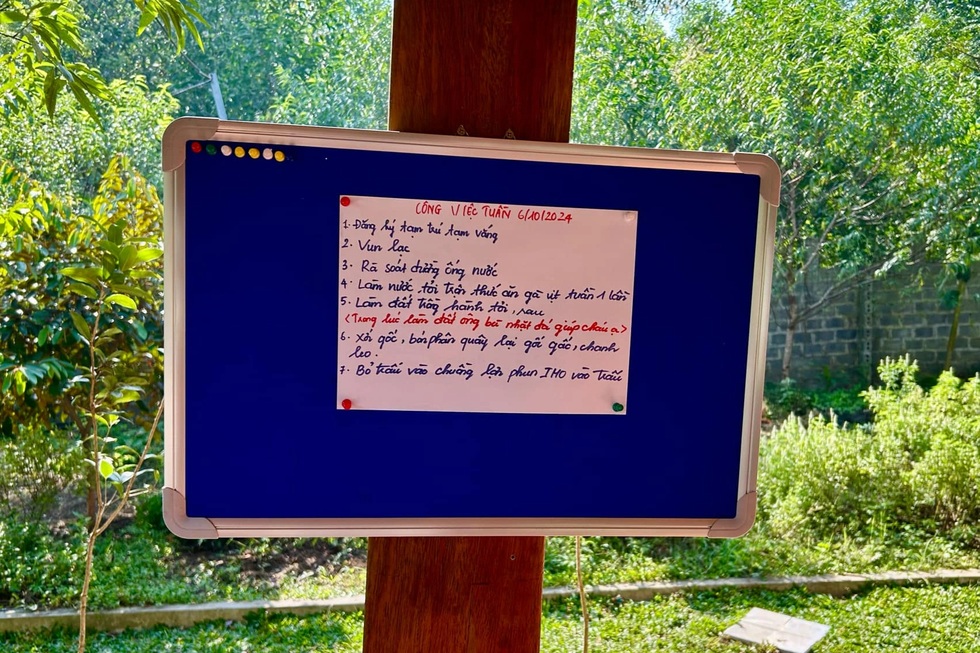 CÔNG VIỆC TUẦN 6/10/2024
1. Đăng ký tạm trú tạm vắng
2. Vun lạc
3. Rà soát đường ống nước
4. Làm nước tỏi trộn thức ăn gà vịt tuần 1 lần
5. Làm đất trồng hành tỏi, rau
(Trong lúc làm đất ông bà nhặt đá giúp cháu ạ)
6. Xới gốc, bón phân quây lại gốc gấc, chanh
leo.
7. Bỏ trấu vào chuồng lợn phun IMO vào trấu